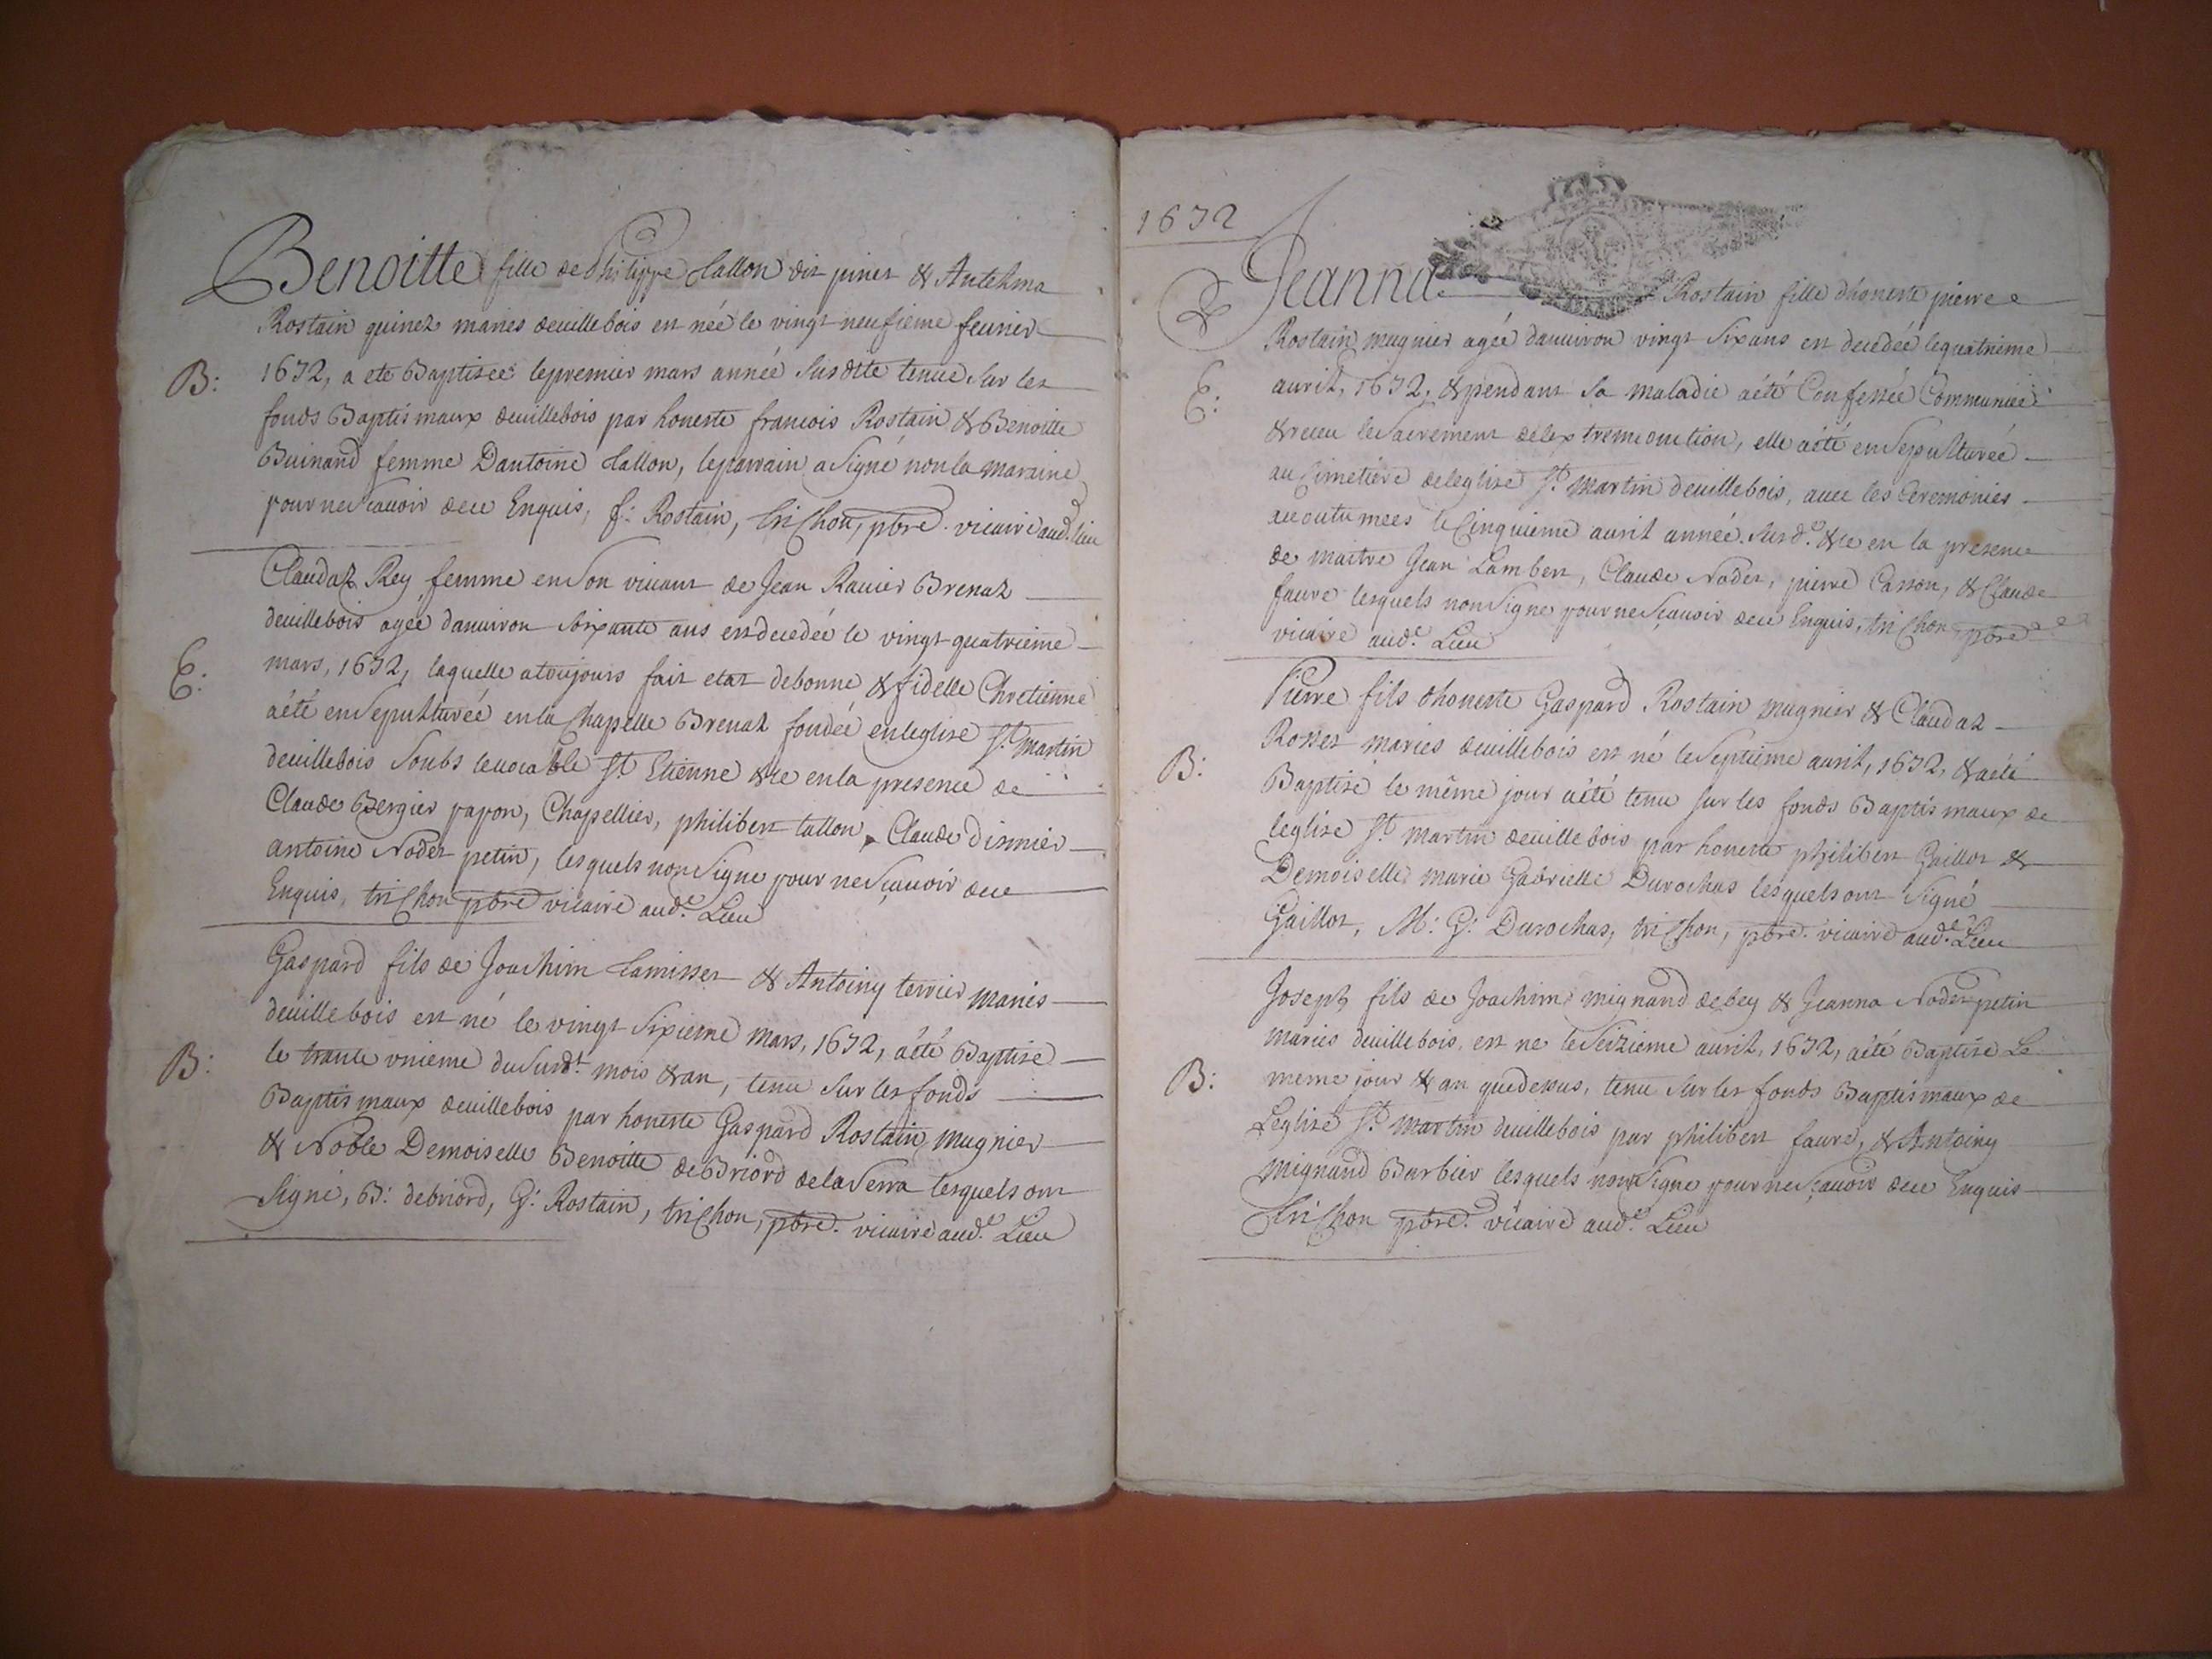 Benoitte fille de Philippe tallon dit pinet & Antehma
Rostain guinet mariés deuillebois est née le vingt neufieme feurier
B: 1672, a ete Baptisée lepremier mars année Susdite tenue Sur les
fonds Baptismaux deuillebois par honeste francois Rostain & Benoitte
Buinand femme Dantoine tallon, leparrain a Signé non la maraine
pour ne Scauoir dece Enquis, f: Rostain, trichon, pbre. vicaire aud. lieu
Claudaz Rey femme enSon viuant de Jean Rauier Brenaz
deuillebois agée danuiron Soixante ans est decedée le vingt quatrieme
E: mars, 1672, laquelle atoujours fait etat debonne & fidelle Chretienne
aété enSepulturée enla Chapelle Brenaz fondée enleglise St. Martin
deuillebois Soubs leuocable St Etienne &ce enla presence de
Claude Bergier papon, Chapellier, philibert tallon, Claude dismier
antoine Nodet petin, lesquels non Signe pour neScauoir dece
Enquis, trichon pbre vicaire aude. Lieu
Gaspard fils de Joachim tamisset & Antoiny terrier mariés
deuillebois est né le vingt Sixieme mars, 1672, aété Baptisé
B: le trante vnieme duSusdt. mois &an, tenu Sur les fonds
Baptismaux deuillebois par honeste Gaspard Rostain mugnier
& Noble Demoiselle Benoitte deBriord delaSerra lesquels ont
Signé, B: debriord, G: Rostain, trichon, pbre. vicaire aude. Lieu
1672
Jeanna Rostain fille dhoneste pierre
Rostain mugnier agée danuiron vingt Six ans est decedée lequatrieme
E: auril, 1672, &pendant Sa maladie aété Confessée Communiée
&receu leSacrement delextremonction, elle aété enSepulturée
au Cimetiere deleglise St. Martin deuillebois, auec les Ceremonies
acoutumees le Cinquieme auril année Susde. &ce en la presence
de maitre Jean Lambert, Claude Nodet, pierre Casson, & Claude
faure lesquels non Signe pour neScauoir dece Enquis, trichon, pbre
vicaire aude. Lieu
Pierre fils dhoneste Gaspard Rostain mugnier & Claudaz
Rosset mariés deuillebois est né leSeptieme auril, 1672, &aété
B: Baptisé le même jour aété tenu Sur les fonds Baptismaux de
leglise St. Martin deuillebois par honeste philibert Gaillot &
Demoiselle marie Gabrielle Durochas lesquels ont Signé
Gaillot, M: G: Durochas, trichon, pbre. vicaire aude. Lieu
Joseph fils de Joachim mignand debey & Jeanna Nodet petin
mariés deuillebois, est ne leSeizieme auril, 1672, aété Baptisé Le
B: meme jour & an quedessus, tenu Sur les fonds Baptismaux de
Leglise St. Martin deuillebois par philibert faure, & Antoiny
mignand Barbier lesquels non Signe pour neScauoir dece Enquis
trichon pbre. vicaire aude. Lieu